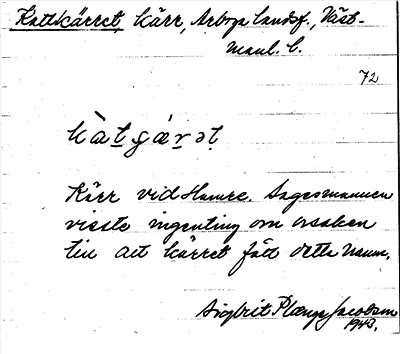 Kattkärret, kärr, Arboga landsf., Väst-
manl. l.
72
kàtɕærət
Kärr vid Hamre. Sagesmannen
visste ingenting om orsaken
till att kärret fått detta namn.
Sigbrit Plænge Jacobson
1943.